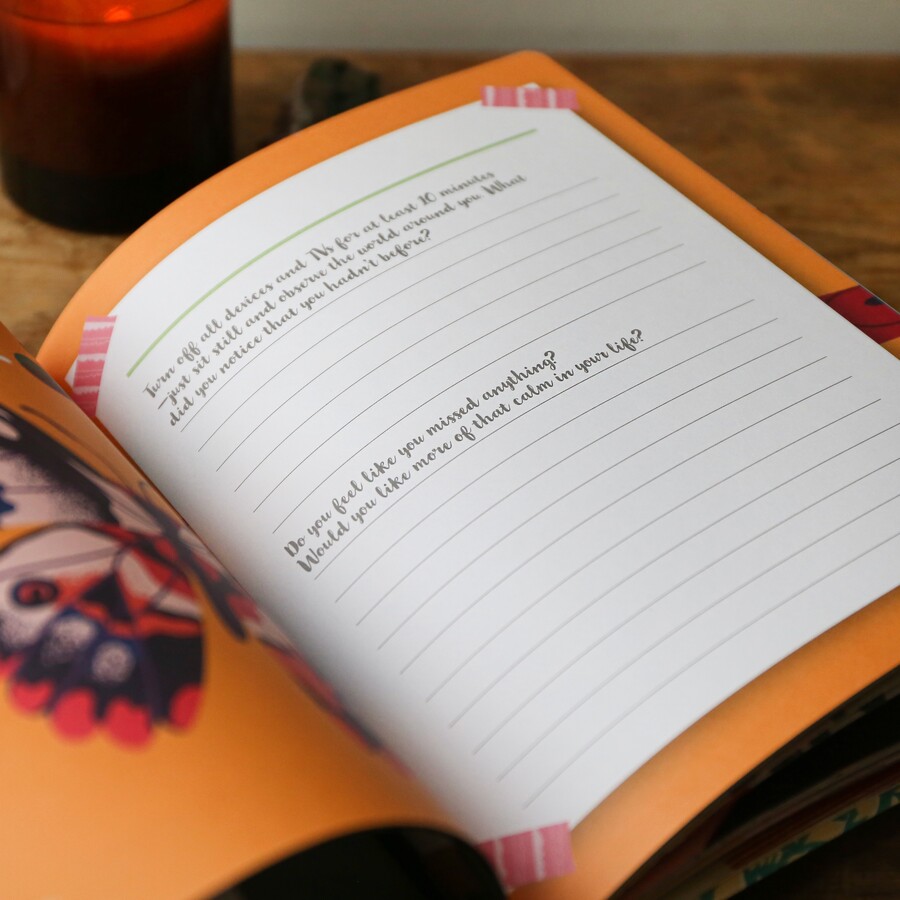 Turn off all devices and TVs for at least 10 minutes
—just sit still and observe the world around you. What
did you notice that you hadn't before?
Do you feel like you missed anything?
Would you like more of that calm in your life?